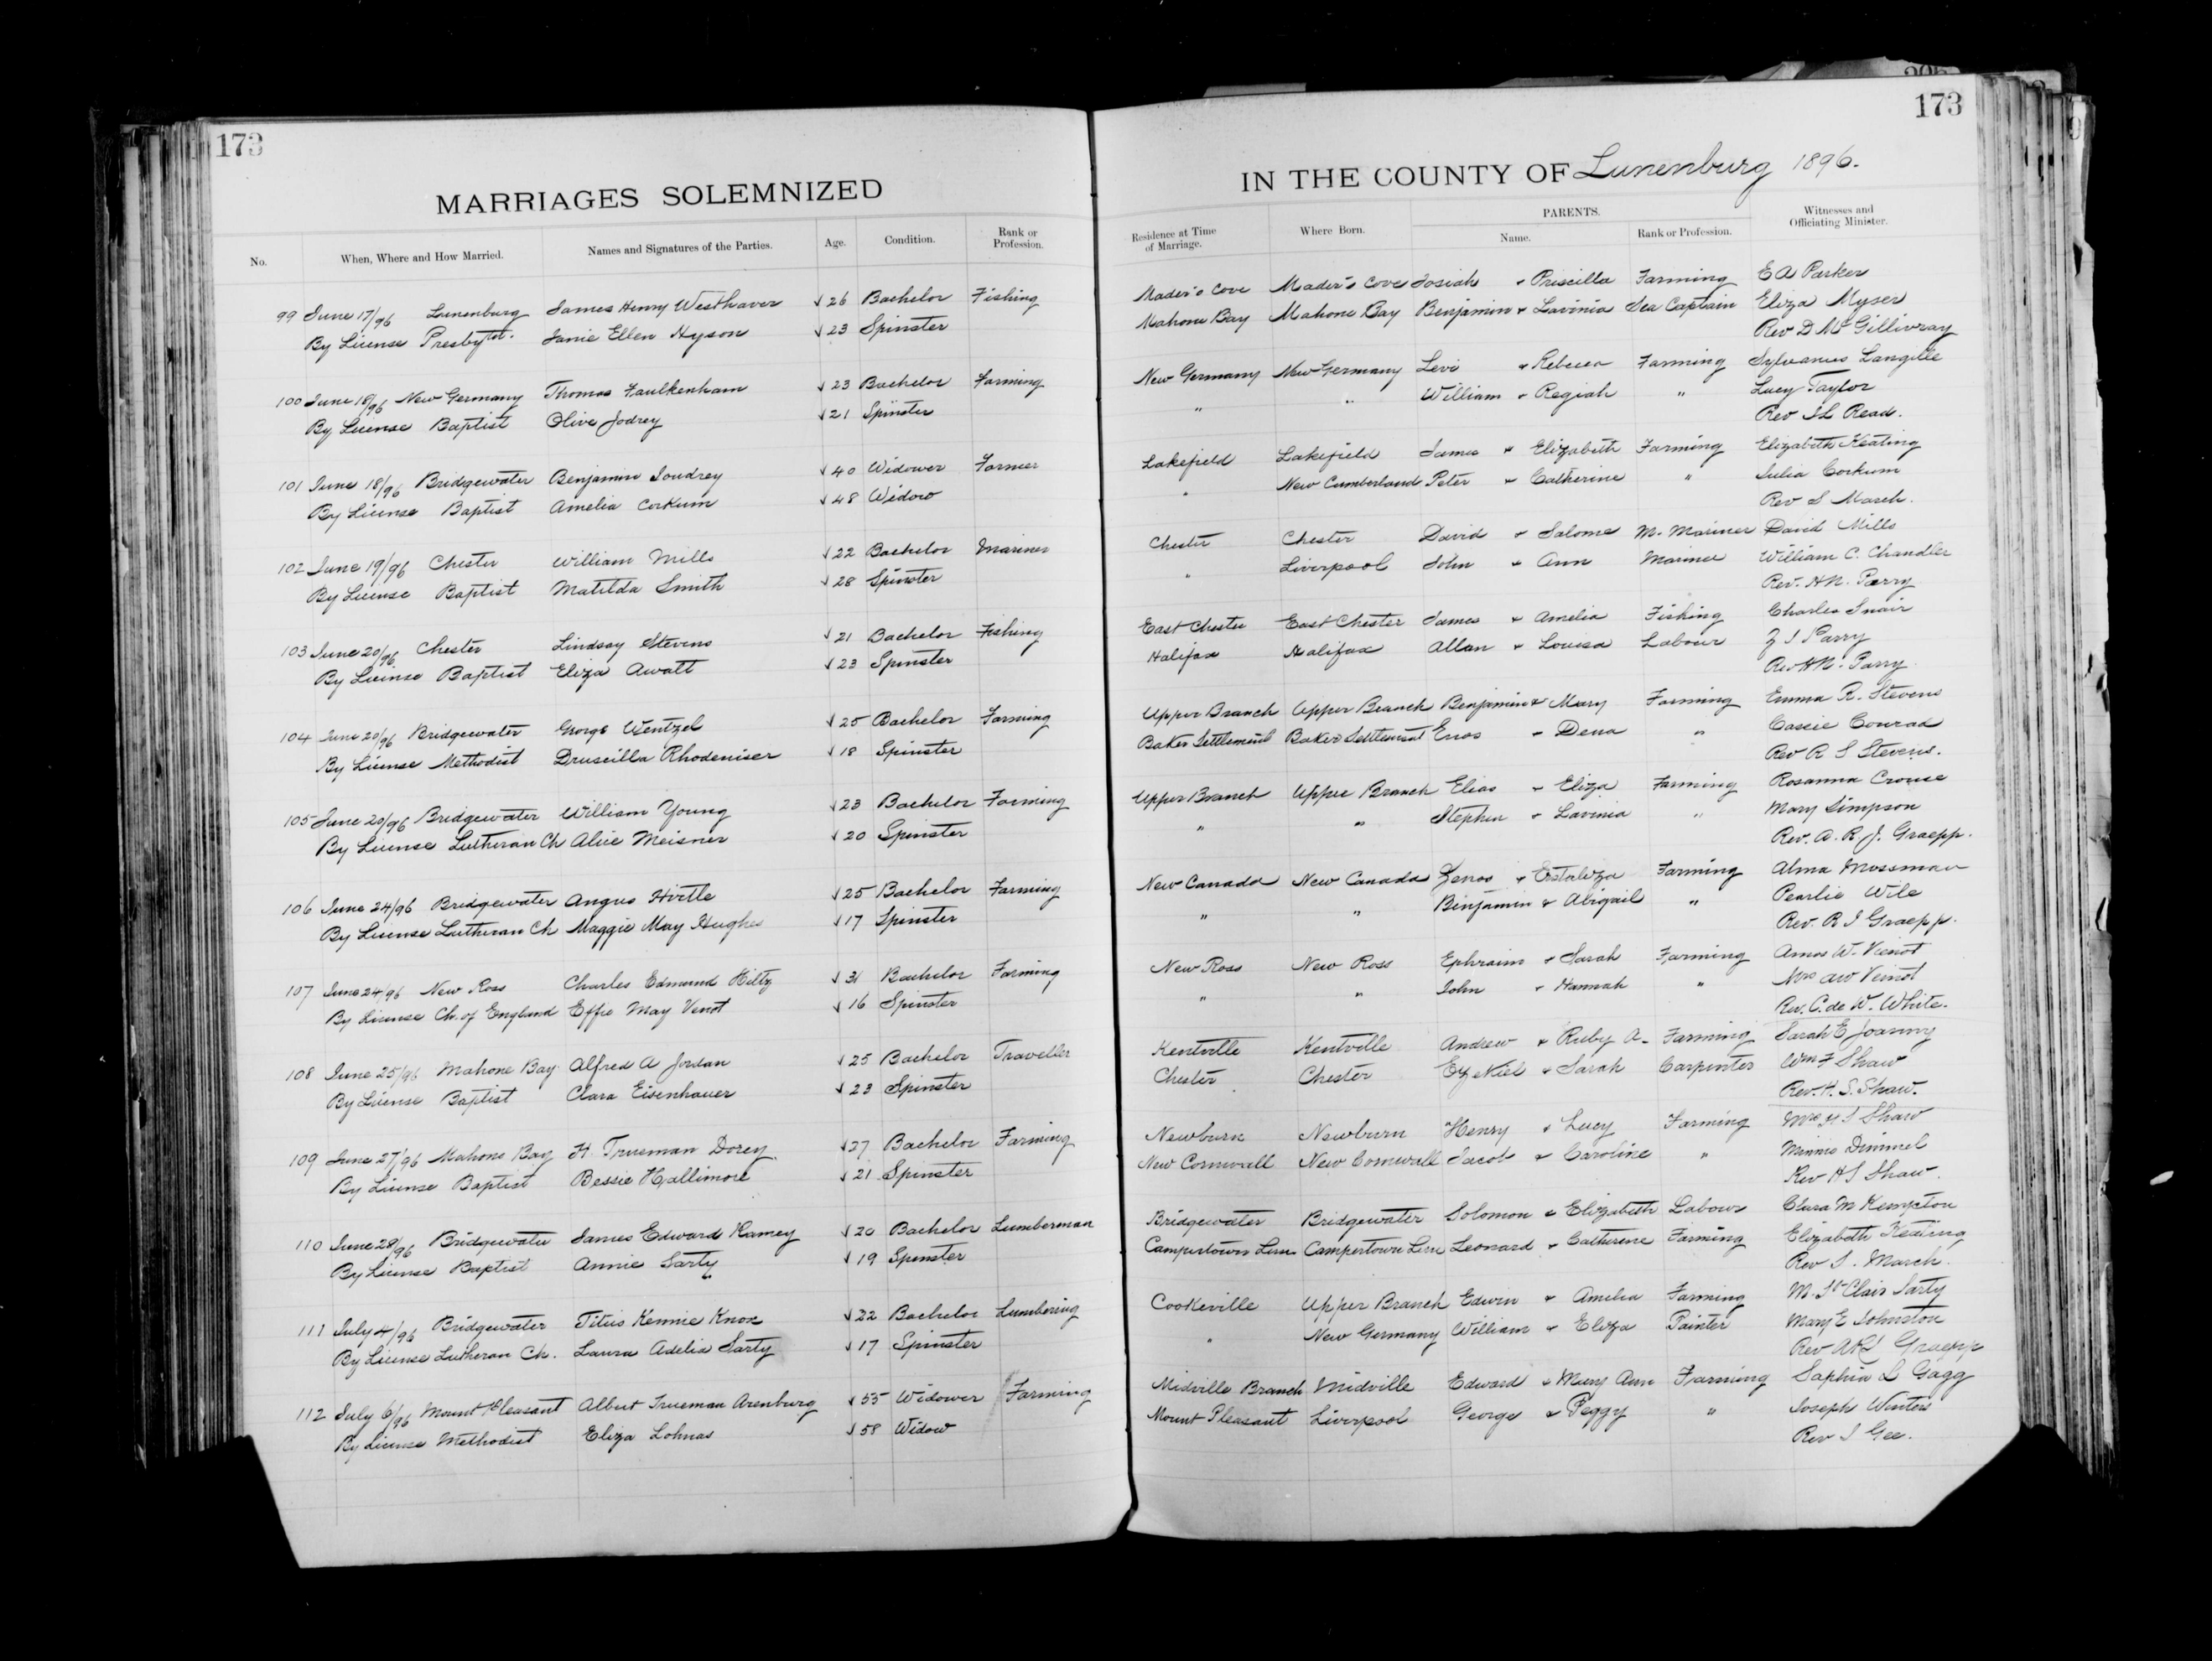 173
MARRIAGES SOLEMNIZED
No. When, Where and How Married. Names and Signatures of the Parties. Age. Condition. Rank or Profession.
99 June 17/96 Lunenburg James Henry Westhaver √ 26 Bachelor Fishing
By License Presbyt. Janie Ellen Hyson √ 23 Spinster
100 June 18/96 New Germany Thomas Faulkenham √ 23 Bachelor Farming
By License Baptist Olive Jodrey √ 21 Spinster
101 June 18/96 Bridgewater Benjamin Joudrey √ 40 Widower Farmer
By License Baptist Amelia Corkum √ 48 Widow
102 June 19/96 Chester William Mills √ 22 Bachelor Mariner
By License Baptist Matilda Smith √ 28 Spinster
103 June 20/96 Chester Lindsay Stevens √ 21 Bachelor Fishing
By License Baptist Eliza Awalt √ 23 Spinster
104 June 20/96 Bridgewater George Wentzel √ 25 Bachelor Farming
By License Methodist Druscilla Rhodeniser √ 18 Spinster
105 June 20/96 Bridgewater William Young √ 23 Bachelor Farming
By License Lutheran Ch Alice Meisner √ 20 Spinster
106 June 24/96 Bridgewater Angus Hirtle √ 25 Bachelor Farming
By License Lutheran Ch Maggie May Hughes √ 17 Spinster
107 June 24/96 New Ross Charles Edmund Hiltz √ 31 Bachelor Farming
By License Ch. of England Effie May Venot √ 16 Spinster
108 June 25/96 Mahone Bay Alfred A Jordan √ 25 Bachelor Traveller
By License Baptist Clara Eisenhauer √ 23 Spinster
109 June 27/96 Mahone Bay H. Trueman Dorey. √ 27 Bachelor Farming
By License Baptist Bessie Hallimore √ 21 Spinster
110 June 28/96 Bridgewater James Edward Ramey √ 20 Bachelor Lumberman
By License Baptist Annie Sarty √ 19 Spinster
111 July 4/96 Bridgewater Titus Kennie Knox √ 22 Bachelor Lumbering
By License Lutheran Ch. Laura Adelia Sarty √ 17 Spinster
112 July 6/96 Mount Pleasant Albert Trueman Arenburg √ 55 Widower Farming
By License Methodist Eliza Lohnas √ 58 Widow
173
IN THE COUNTY OF Lunenburg 1896.
Residence at Time of Marriage. Where Born. PARENTS. Name. Rank or Profession. Witnesses and Officiating Minister.
Mader's Cove Mader's Cove Josiah & Priscilla Farming E A Parker
Mahone Bay Mahone Bay Benjamin & Lavinia Sea Captain Eliza Myser
Rev D McGillivray
New Germany New Germany Levi & Rebecca Farming Sylvanus Langille
" " William & Regiah " Lucy Taylor
Rev J L Read.
Lakefield Lakefield James & Elizabeth Farming Elizabeth Keating
" New Cumberland Peter & Catherine " Julia Corkum
Rev S March.
Chester Chester David & Salome M. Mariner David Mills
" Liverpool John & Ann Mariner William C. Chandler
Rev. H N. Parry
East Chester East Chester James & Amelia Fishing Charles Snair
Halifax Halifax Allan & Louisa Labour Z I Parry
Rev H N. Parry
Upper Branch Upper Branch Benjamin & Mary Farming Emma R. Stevens
Baker Settlement Baker Settlement Enos & Dena " Cassie Conrad
Rev R S Stevens.
Upper Branch Upper Branch Elias & Eliza Farming Rosanna Crouse
" " Stephen & Lavinia " Mary Simpson
Rev. A. R. J. Graepp.
New Canada New Canada Zenos & Farming Alma Mossman
" " Benjamin & Abigail " Pearlie Wile
Rev. R J Graepp.
New Ross New Ross Ephraim & Sarah Farming Amos W. Vienot
" " John & Hannah " Mrs AW Veinot
Rev. C. de W. White.
Kentville Kentville Andrew & Ruby A. Farming Sarah E
Chester Chester Ezekiel & Sarah Carpenter Wm F Shaw
Rev. H. S. Shaw.
Newburn Newburn Henry & Lucy Farming Mrs H S Shaw
New Cornwall New Cornwall Jacob & Caroline " Minnie Dimmel
Rev H S Shaw.
Bridgewater Bridgewater Solomon & Elizabeth Labour Clara M Kempton
Campertown Line Campertown Line Leonard & Catherine Farming Elizabeth Keating
Rev S. March.
Cookeville Upper Branch Edwin & Amelia Farming M. St Clair Sarty
" New Germany William & Eliza Painter Mary E Johnston
Rev ARJ Graepp
Midville Branch Midville Edward & Mary Ann Farming Saphia L Gagg
Mount Pleasant Liverpool George & Peggy " Joseph Winters
Rev J Gee.